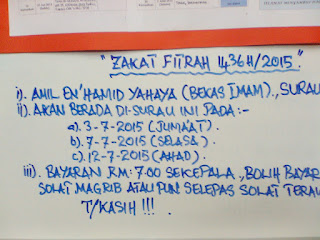 "ZAKAT FITRAH 1436H/2015".
i). AMIL EN' HAMID YAHAYA (BEKAS IMAM)., SURAU
ii). AKAN BERADA DI-SURAU INI PADA:-
a). 3-7-2015 (JUMAAT).
b). 7-7-2015 (SELASA).
c). 12-7-2015 (AHAD).
iii). BAYARAN RM: 7.00 SEKEPALA., BOLIH BAYAR
SOLAT MAGRIB ATAU PUN SELEPAS SOLAT TERAW
T/KASIH !!!